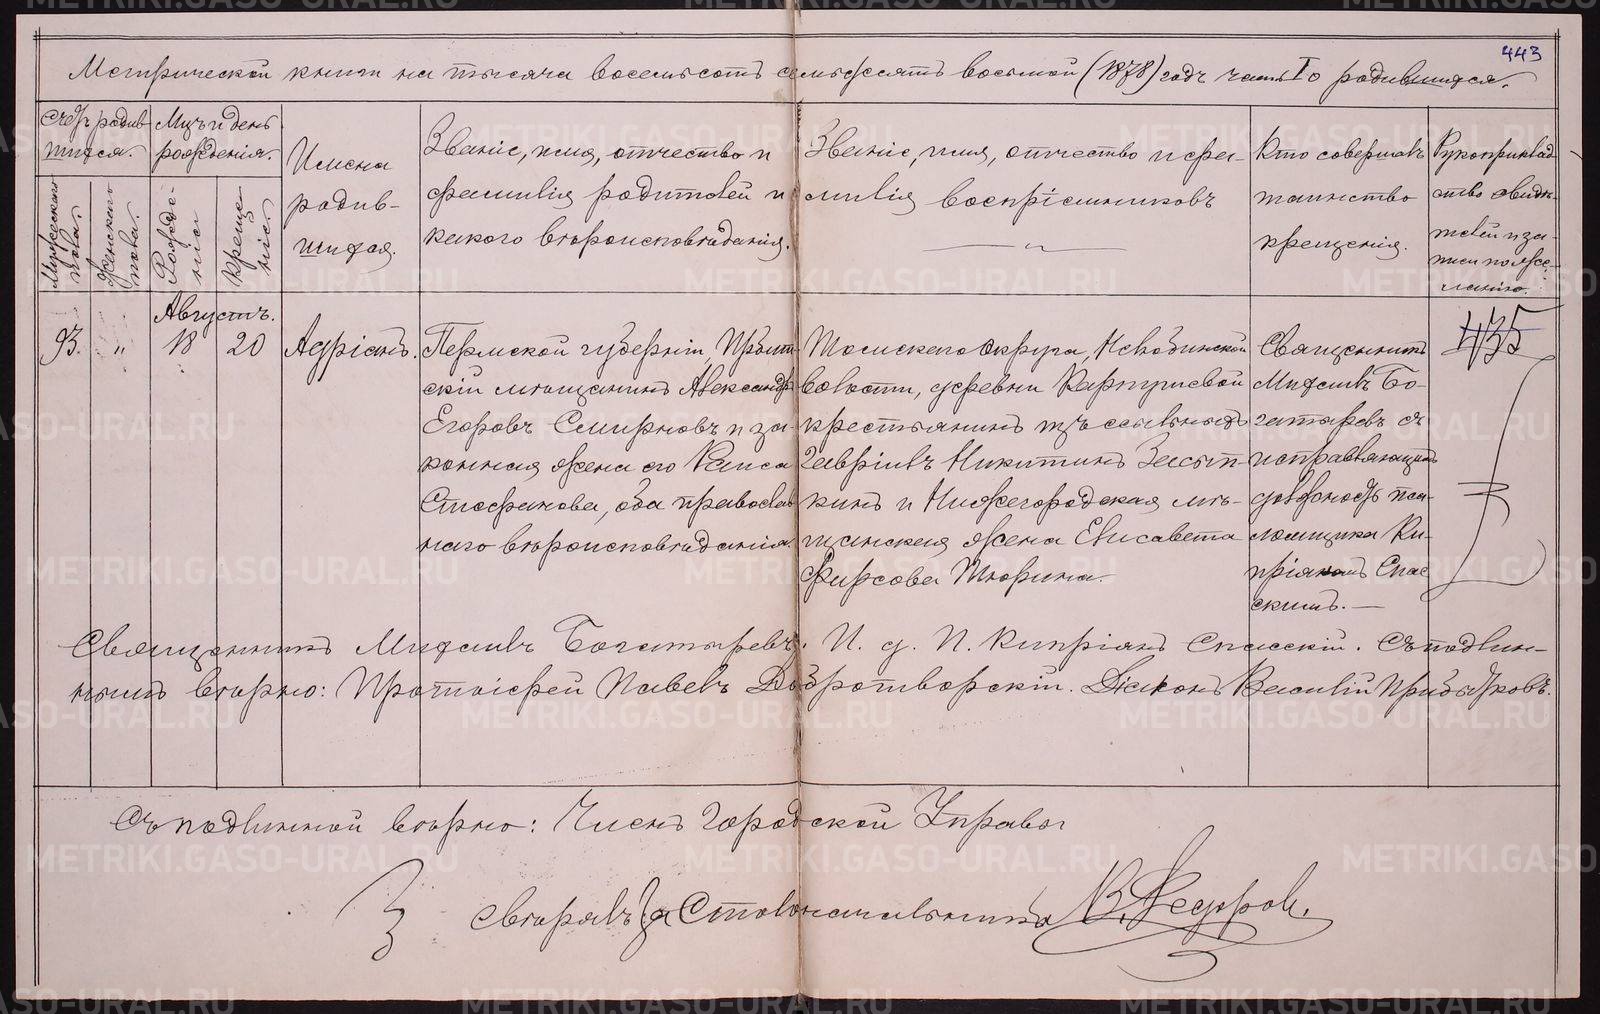 443
Метрической книги на тысяча восемьсотъ семьдесятъ восьмой (1878) годъ часть I о родившихся.
Счетъ родив-
шихся.
Мужескаго пола.
Женскаго пола.
Мѣс. и день
рожденія.
Рожде-
нія
Креще-
нія.
Имена
родив-
шихся.
Званіе, имя, отчество и
фамилія родителей и
какого вѣроисповѣданія.
Званіе, имя, отчество и фа-
милія воспріемниковъ
Кто совершалъ
таинство
крещенія.
Рукоприклад-
ство свидѣ-
телей и за-
писи по же-
ланію.
Августъ.
93. " 18 20
Адріанъ.
Пермской губерніи, Ирбит-
скій мѣщанинъ Александръ
Егоровъ Смирновъ и за-
конная жена его Раиса
Стефанова, оба православ-
наго вѣроисповѣданія
Томскаго округа, Нелюбинской
волости, деревни
крестьянинъ изъ ссыльныхъ
Гавріилъ Никитинъ
кинъ и Нижегородская мѣ-
щанская жена Елисавета
Фирсова Тюрина.
Священникъ
Михаилъ Бо-
гатыревъ съ
исправляющимъ
должность пса-
ломщика Ки-
пріаномъ Спас-
скимъ.
435
Священникъ Михаилъ Богатыревъ. И. д. П. Кипріанъ Спасскій. Съ подлин-
нымъ вѣрно: Протоіерей Павелъ Добротворскій. Діаконъ Василій Прибытковъ.
Съ подлинной вѣрно: Членъ Городской Управы
Свѣрялъ: За Столоначальника В. Федоров.
METRIKI.GASO-URAL.RU